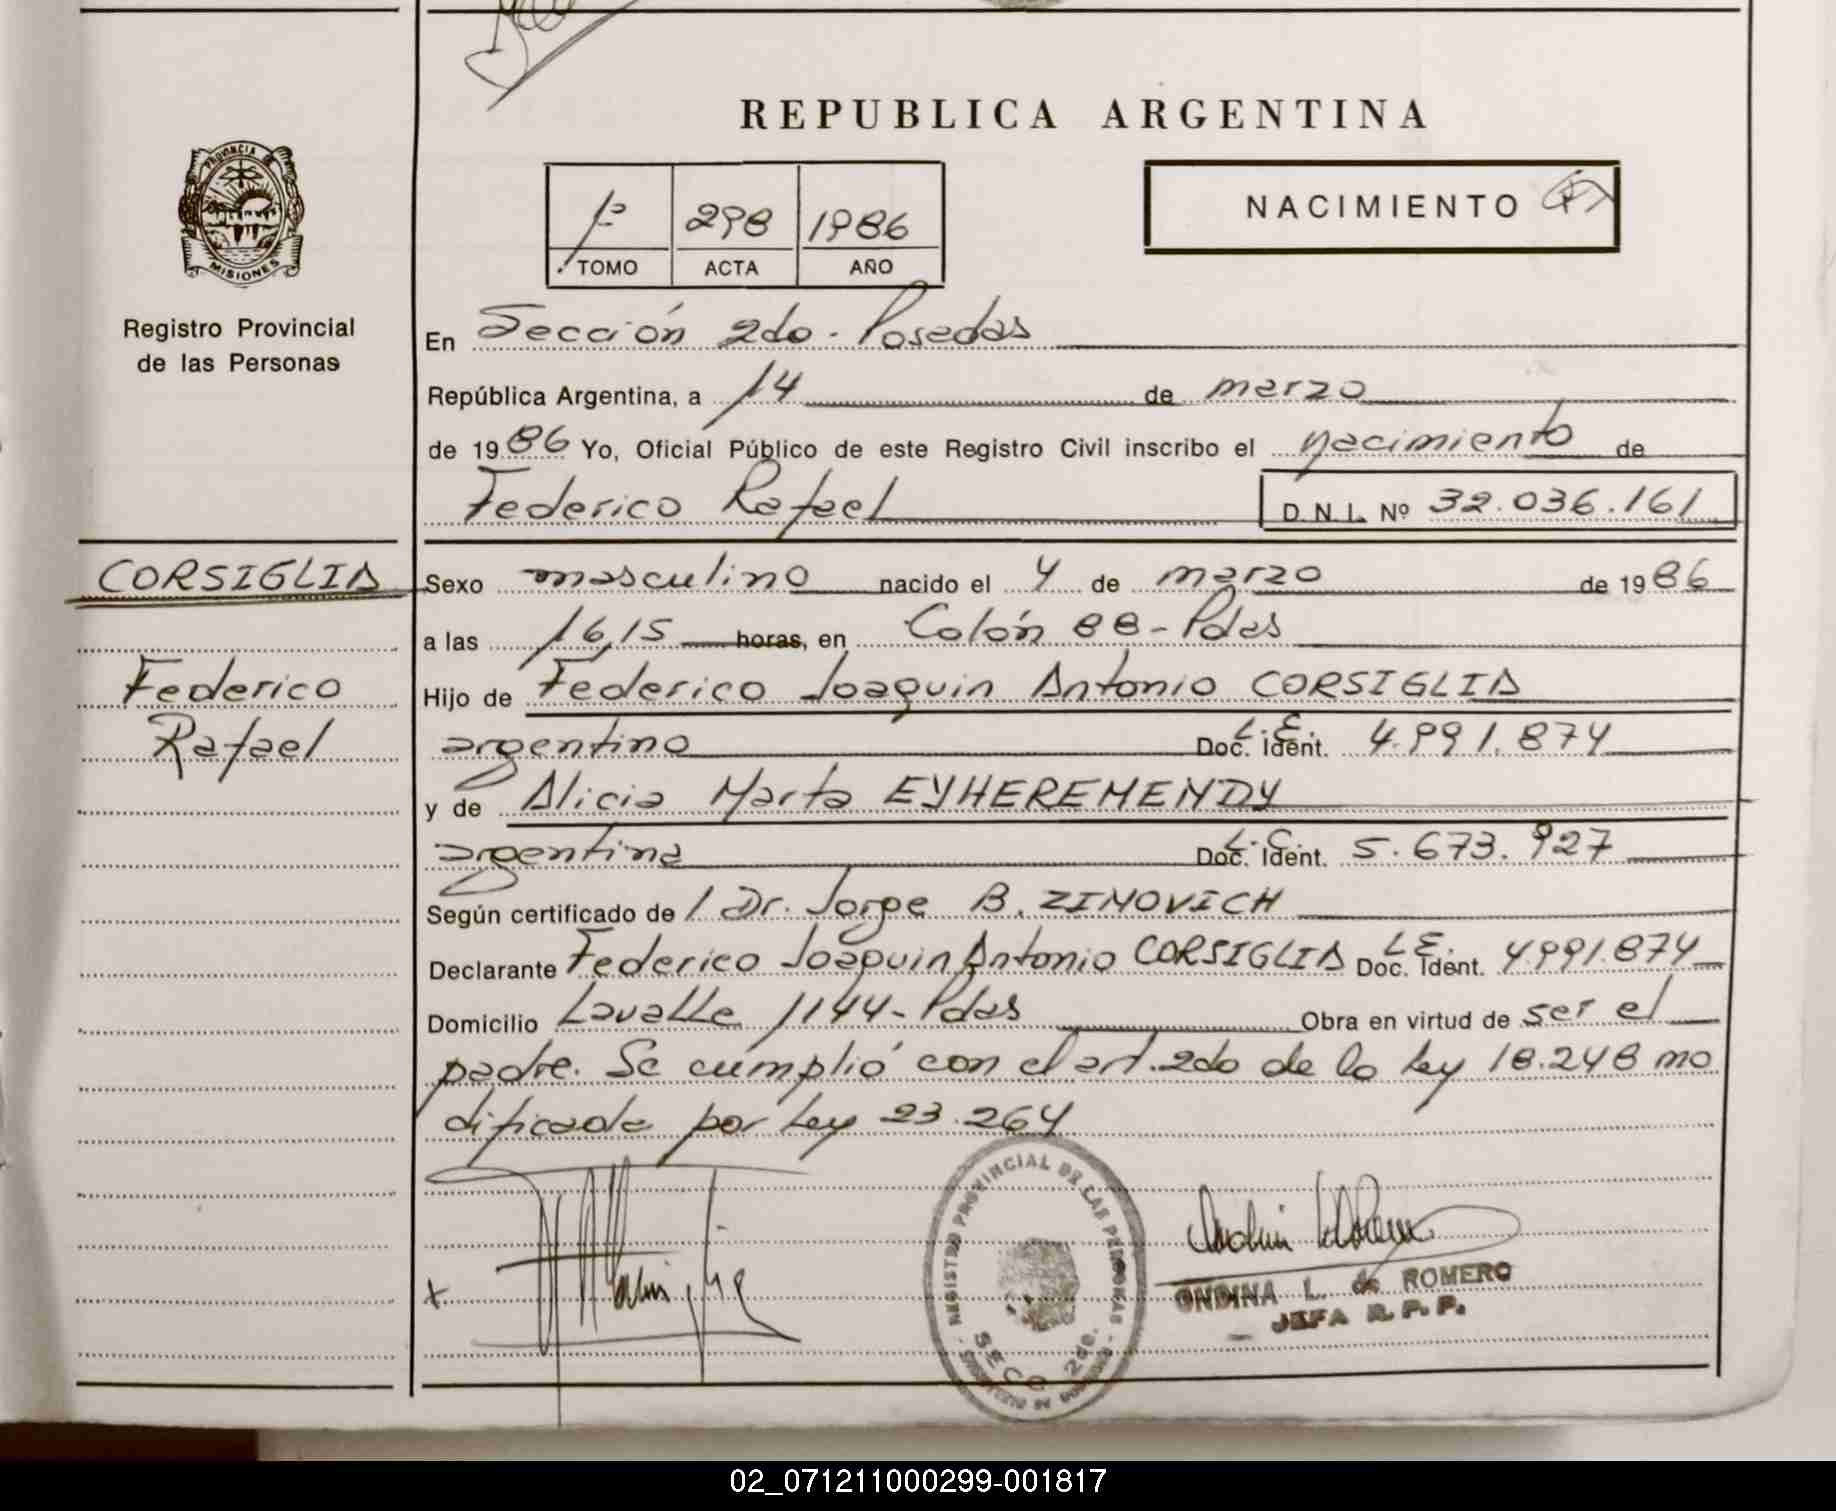 REPUBLICA ARGENTINA
PROVINCIA DE
MISIONES
Registro Provincial
de las Personas
1º 298 1986
TOMO ACTA AÑO
NACIMIENTO
En Sección 2da - Posadas
República Argentina, a 14 de marzo
de 1986 Yo, Oficial Público de este Registro Civil inscribo el nacimiento de
Federico Rafael D.N.I. Nº 32.036.161
CORSIGLIA
Federico
Rafael
Sexo masculino nacido el 4 de marzo de 1986
a las 16,15 horas, en Colón 88 - Pdas
Hijo de Federico Joaquin Antonio CORSIGLIA
argentino L.E. Doc. Ident. 4.991.874
y de Alicia Marta EYHEREMENDY
argentina L.C. Doc. Ident. 5.673.927
Según certificado de / Dr. Jorge B. ZIMOVICH
Declarante Federico Joaquin Antonio CORSIGLIA L.E. Doc. Ident. 4.991.874
Domicilio Lavalle 1144 - Pdas Obra en virtud de ser el
padre. Se cumplió con el art. 2do de la Ley 18.248 mo
dificada por Ley 23.264
REGISTRO PROVINCIAL DE LAS PERSONAS
SECC. 2da.
x
ONDINA L. de ROMERO
JEFA R.P.P.
02_071211000299-001817